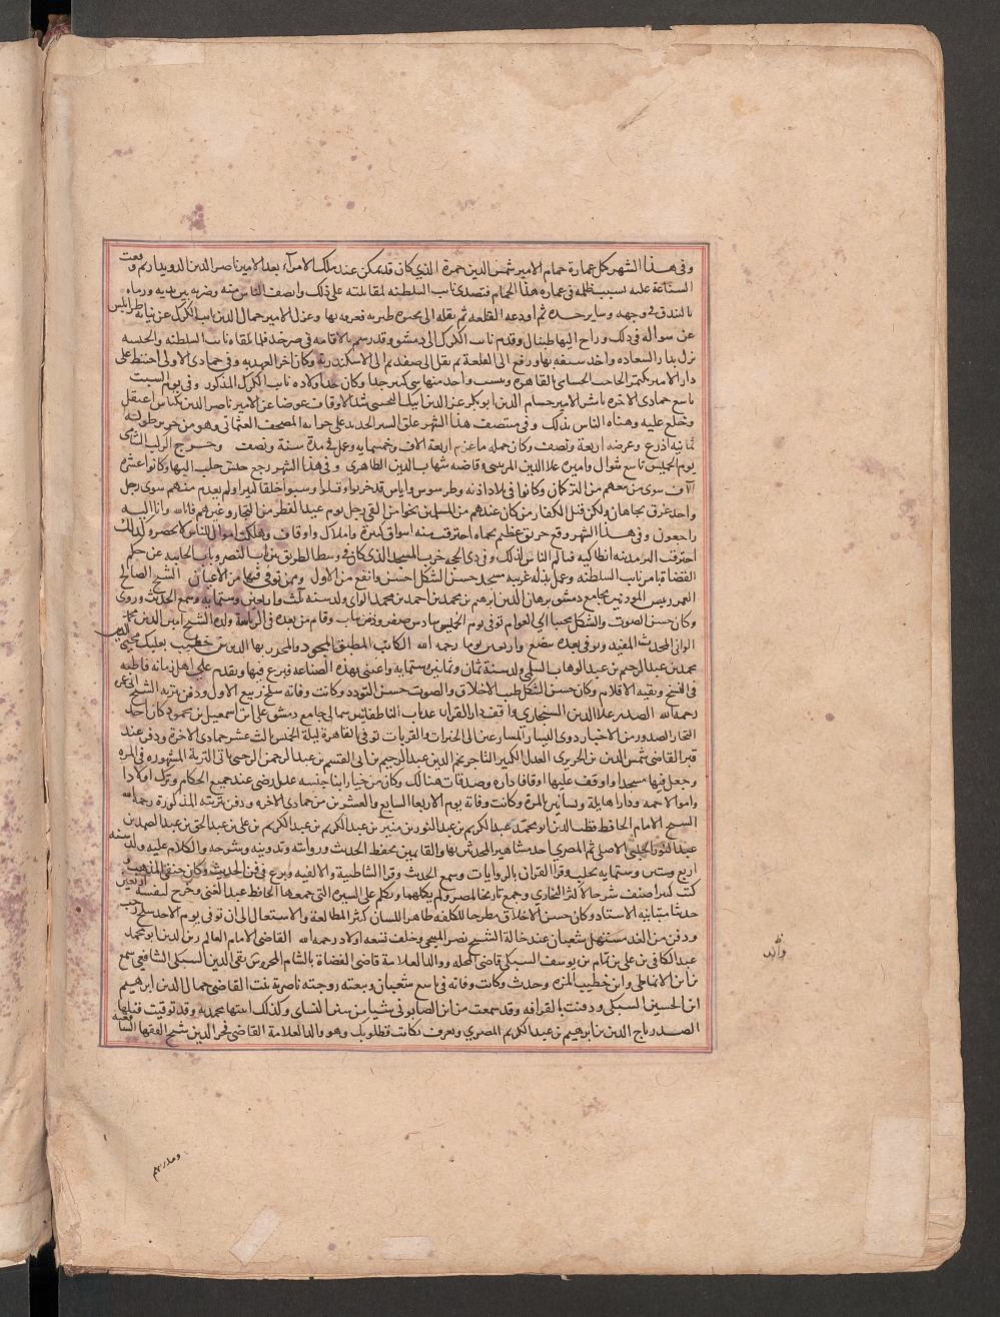 وفى هذا الشهر كمل عمارة حمام الامير شمس الدين حمزة الذي كان قد تمكن عند ملك الامرآء بعد الامير ناصر الدين الدويدار ثم وقعت
الشناعة عليه بسبب ظلمه فى عمارة هذا الحمام فتصدى نايب السلطنه لمقابلته على ذلك وانصف الناس منه وضربه بين يديه ورماه
بالبندق فى وجهه وساير جسده ثم اودعه القلعه ثم نقله الى بحيرة طبريه فغرقه بها وعزل الامير جمال الدين نايب الكرك عن نيابة طرابلس
عن سواله فى ذلك وراح اليها طينال وقدم نايب الكرك الى دمشق وقد رسم بالاقامه فى صرخد فلما تلقاه نايب السلطنه والجيش
نزل بدار السعاده واخذ سيفه بها ورفع الى القلعة ثم نقل الى صفد ثم الى الاسكندرية وكان اخر العهد به وفى جمادى الاولى احتيط على
دار الامير بكتمر الحاجب الحسامى القاهرة ونبشت واخذ منها شى كثير جدا وكان جد اولاده نايب الكرك المذكور وفى يوم السبت
تاسع جمادى الاخرة باشر الامير حسام الدين ابو بكر عز الدين ايبك النجيبى شد الاوقاف عوضا عن الامير ناصر الدين بكتاش اعتقل
وخلع عليه وهناه الناس بذلك وفى منتصف هذا الشهر علق الستر الجديد على خزانه المصحف العثمانى وهو من خز طوله
ثمانية اذرع وعرضه اربعة ونصف وكان جمله ما غرم اربعة الاف وخمسمايه وعمل فى مدة سنة ونصف وخرج الركب الشامى
يوم الخميس تاسع شوال واميره علا الدين المرسى وقاضيه شهاب الدين الظاهرى وفى هذا الشهر رجع جيش حلب اليها وكانوا عشرة
آلاف سوى من معهم من التركمان وكانوا فى بلاد اذنه وطرسوس واياس قد خربوا وقتلوا وسبوا خلقا كثيرا ولم يعدم منهم سوى رجل
واحد غرق بجاهان ولكن قتل الكفار من كان عندهم من المسلمين نحوا من الفى رجل يوم عيد الفطر من التجار وغيرهم فانا لله وانا اليه
راجعون وفى هذا الشهر وقع حريق عظيم بحماه احترقت منه اسواق كثيرة واملاك واوقاف وهلكت اموال للناس لا تحصر وكذلك
احترقت اكثر مدينه انطاكيه فتالم الناس لذلك وفى ذى الحجه خرب المسجد الذى كان فى وسط الطريق بين باب النصر وباب الجابيه عن حكم
القضاة بامر نايب السلطنه وعمل بدله غربيه مسجد حسن الشكل احسن وانفع من الاول وممن توفى فيها من الاعيان الشيخ الصالح
المعمر رييس المؤذنين بجامع دمشق برهان الدين ابرهيم بن محمد بن احمد بن محمد الوانى ولد سنه ثلث واربعين وستمايه وسمع الحديث وروى
وكان حسن الصوت والشكل محببا الى العوام توفى يوم الخميس سادس صفر ودفن بباب وقام من بعده فى الرياسة ولده الشيخ امين الدين محمد
الوانى المحدث المفيد وتوفى بعده ببضع واربعين يوما رحمه الله الكاتب المطبق المجود والمحرر بها الدين بن خطيب بعلبك محيى الدين
محمد بن عبد الرحيم بن عبد الوهاب السلمى ولد سنة ثمان وثمانين وستمايه واعتنى بهذه الصناعة فبرع فيها وتقدم على اهل زمانه قاطبه
فى النسخ وبقيه الاقلام وكان حسن الشكل طيب الاخلاق والصوت حسن التودد وكانت وفاته سلخ ربيع الاول ودفن بتربه الشيخ ابى عمر
رحمه الله الصدر علا الدين السنجارى واقف دار القران عند باب الناطفانيين شمالى جامع دمشق على بن اسمعيل بن محمود كان احد
التجار الصدور من الاخيار ذوى اليسار المسارعين الى الخيرات والقربات توفى القاهرة ليلة الخميس ثالث عشر جمادى الاخرة ودفن عند
قبر القاضى شمس الدين بن الحريرى العدل الكبير التاجر نجم الدين عبد الرحيم بن ابى القسم بن عبد الرحمن الرحبى بانى التربة المشهوره فى المزه
وجعل فيها مسجدا واوقف عليها اوقافا داره وصدقات هنالك وكان من خيار ابنا جنسه عدل رضى عند جميع الحكام وترك اولادا
واموالا جمه ودارا هايلة وبساتين بالمزة وكانت وفاته يوم الاربعا السابع والعشرين من جمادى الاخره ودفن بتربته المذكورة رحمه الله
الشيخ الامام الحافظ قطب الدين ابو محمد عبد الكريم بن عبد النور بن منير بن عبد الكريم بن على بن عبد الحق بن عبد الصمد بن
عبد النور الحلبى الاصلى ثم المصرى احد مشاهير المحدثين بها والقايمين بحفظ الحديث وروايته وتدوينه وشرحه والكلام عليه ولد سنه
اربع وستين وستمايه بحلب وقرا القران بالروايات وسمع الحديث وقرا الشاطبية والالفيه وبرع فى فن الحديث وكان حنفى المذهب و
كتب كثيرا صنف شرحا لاكثر البخارى وجمع تاريخا لمصر ولم يكملهما وتكلم على السيره التى جمعها الحافظ عبد الغنى وخرج لنفسه اربعين
حديثا متباينه الاسناد وكان حسن الاخلاق مطرحا للكلفه طاهر اللسان كثير المطالعة والاشتغال الى ان توفى يوم الاحد سلخ رجب
ودفن من الغد مستهل شعبان عند خاله الشيخ نصر المنبجى وخلف تسعه اولاد رحمه الله القاضى الامام العالم زين الدين ابو محمد
عبد الكافى بن على بن تمام بن يوسف السبكى قاضى المحله ووالد العلامة قاضى القضاة بالشام المحروس تقى الدين السبكى الشافعى سمع
من ابن الانماطى وابن خطيب المزه وحدث وكانت وفاته فى تاسع شعبان وتبعته زوجته ناصرية بنت القاضى جمال الدين ابرهيم
ابن الحسين السبكى ودفنت بالقرافه وقد سمعت من ابن الصابونى شيا من سنن النساى وكذلك ابنتها محمديه وقد توفيت قبلها
الصدر تاج الدين بن ابرهيم بن عبد الكريم المصرى ويعرف بكاتب قطلوبك وهو والد العلامة القاضى فخر الدين شيخ الفقها الشافعيه
والد
ومدرسهم